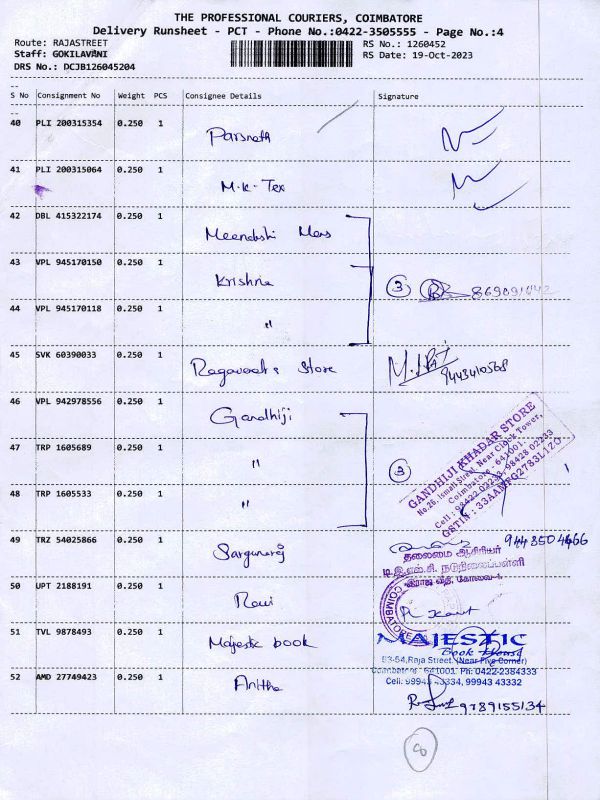 THE PROFESSIONAL COURIERS, COIMBATORE
Delivery Runsheet - PCT - Phone No.:0422-3505555 - Page No.:4
Route: RAJASTREET
RS No.: 1260452
Staff: GOKILAVANI
RS Date: 19-Oct-2023
DRS No.: DCJB126045204
S No Consignment No Weight PCS Consignee Details Signature
40 PLI 200315354 0.250 1 Parsnath
41 PLI 200315064 0.250 1 M.K. Tex
42 DBL 415322174 0.250 1 Meenakshi Mens
43 VPL 945170150 0.250 1 Krishna
3
44 VPL 945170118 0.250 1 "
45 SVK 60390033 0.250 1 Store
9443410568
46 VPL 942978556 0.250 1 Gandhiji
47 TRP 1605689 0.250 1 "
3
48 TRP 1605533 0.250 1 "
GANDHIJI KHADAR STORE
No.26, Ismail Street, Near Clock Tower,
Coimbatore - 641001.
Cell : 98422 02233, 98428 02233
GSTIN : 33AAMFG2783L1ZO
49 TRZ 54025866 0.250 1 Sargunaraj
9443504466
தலைமை ஆசிரியர்
டி.இ.எல்.சி. நடுநிலைப்பள்ளி
இராஜ வீதி, கோவை-1.
COIMBATORE
50 UPT 2188191 0.250 1 Ravi
51 TVL 9878493 0.250 1 Majestic book
MAJESTIC
Book House
53-54, Raja Street, (Near Five Corner)
Coimbatore - 641001. Ph: 0422-2384333
Cell: 99943 43334, 99943 43332
52 AMD 27749423 0.250 1 Anitha
9789155134
8